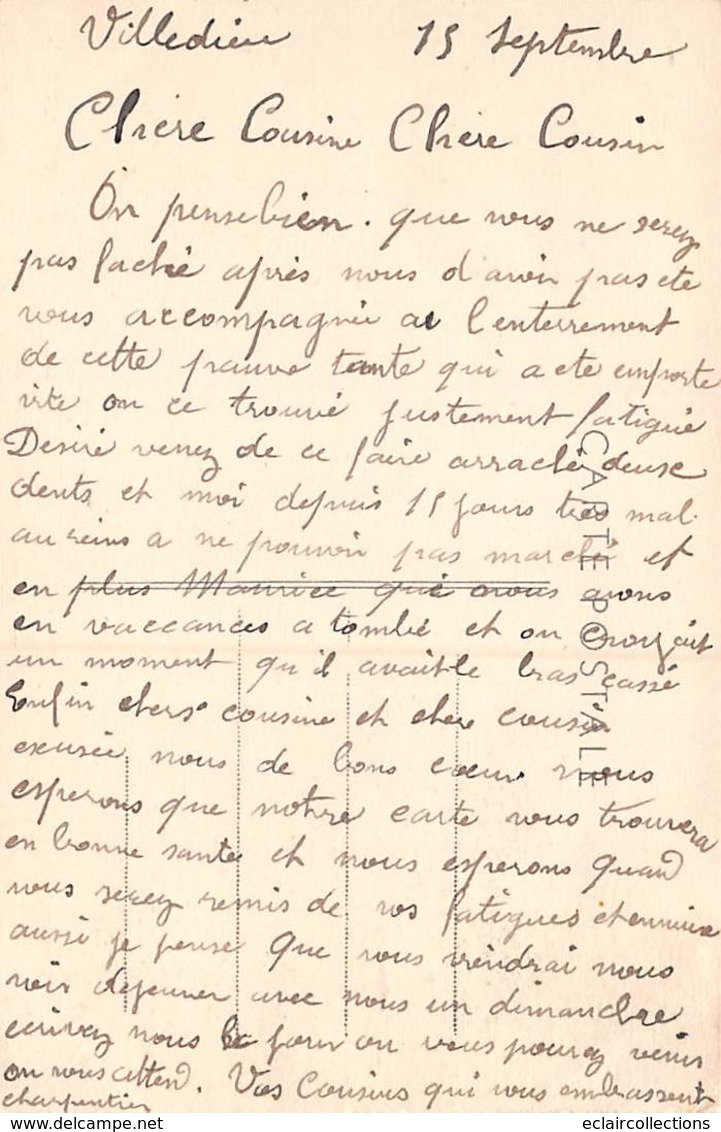 Villedieu 15 Septembre
Chère Cousine Chère Cousin
On pensebien. que vous ne serez
pas faché après nous d'avoir pas ete
vous accompagnée a l'enterrement
de cette pauve tante qui a ete emporte
vite on ce trouvé justement fatigué
Desiré venez de ce faire arraché deuse
dents et moi depuis 15 jours tres mal
au reins a ne pouvoir pas marché et
en plus Maurice que nous avons
en vaccances a tombé et on croyait
un moment qu'il avait le bras cassé
Enfin chers cousine et chere cousin
excusée nous de bons coeur nous
esperons que notre carte vous trouvera
en bonne sante et nous esperons quand
vous serez remis de vos fatigues et ennuie
aussi je pense que vous viendrai nous
voir dejeuner avec nous un dimanche
ecrivez nous le jour ou vous pourez venir
on vous attend. Vos Cousins qui vous embrassent
charpentier
CARTE POSTALE
eclaircollections